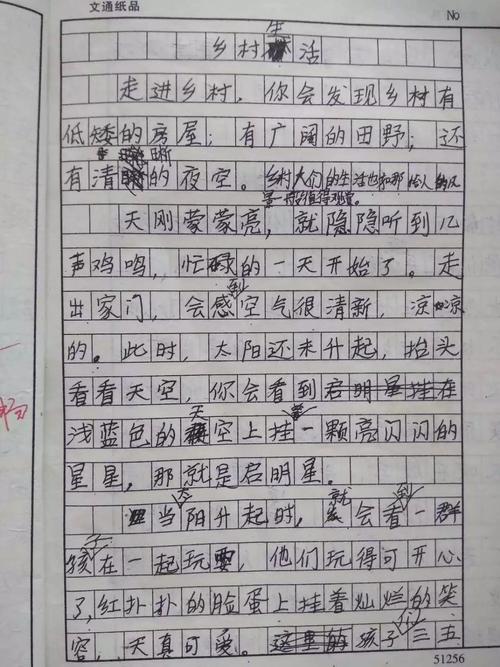 文通纸品
No
乡村生活
走进乡村，你会发现乡村有
低矮的房屋；有广阔的田野；还
有清晰的夜空。乡村人们的生活也和那怡人的风
景一般值得观赏。
天刚蒙蒙亮，就隐隐听到几
声鸡鸣，忙碌的一天开始了。走
出家门，会感到空气很清新，凉凉
的。此时，太阳还未升起，抬头
看看天空，你会看到启明星挂在
浅蓝色的天空上挂着一颗亮闪闪的
星星，那就是启明星。
当太阳升起时，就会看到一群
孩子在一起玩耍，他们玩得可开心
了，红扑扑的脸蛋上挂着灿烂的笑
容，天真可爱。这里的孩子三五
51256